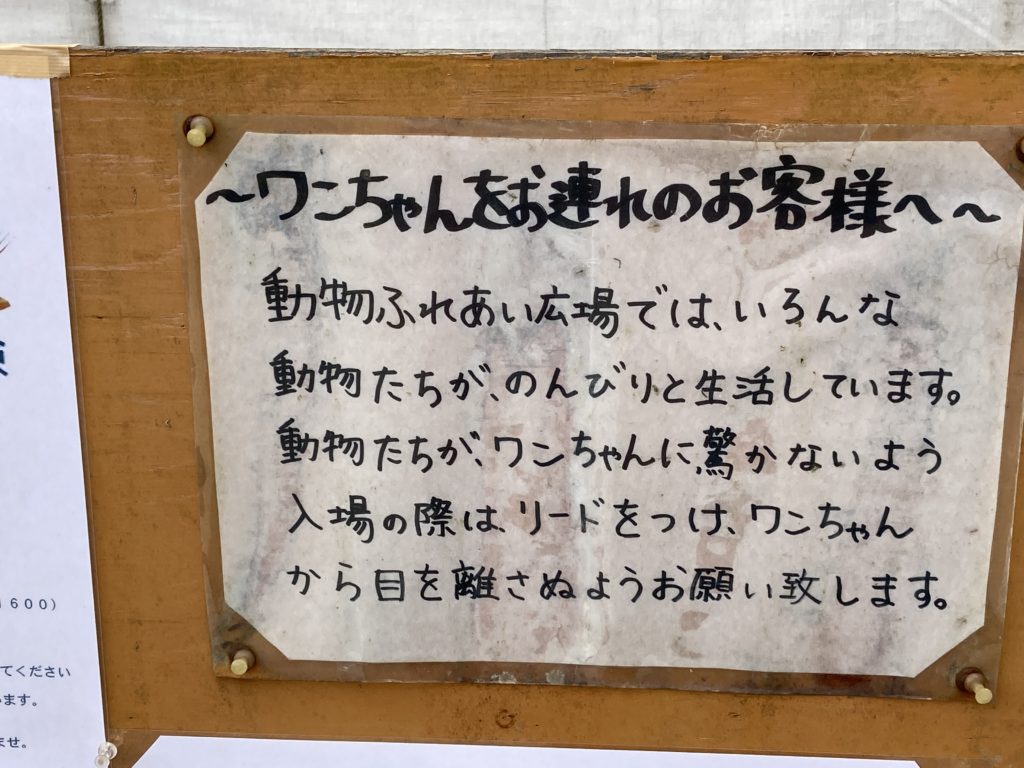 ～ワンちゃんをお連れのお客様へ～
動物ふれあい広場では、いろんな
動物たちが、のんびりと生活しています。
動物たちが、ワンちゃんに驚かないよう
入場の際は、リードをつけ、ワンちゃん
から目を離さぬようお願い致します。
600）
てください
ます。
ませ。